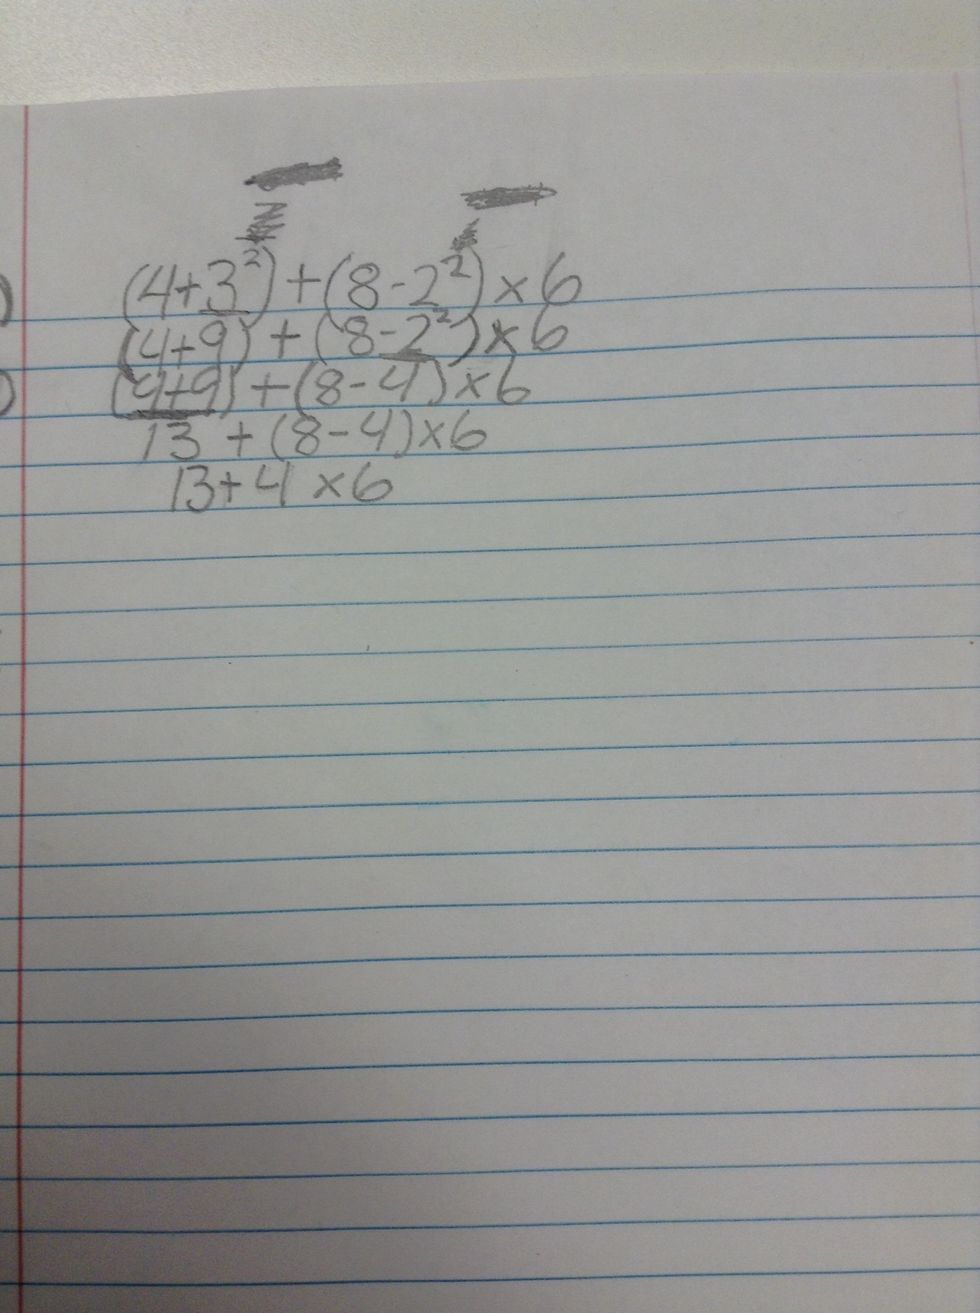 (4+3²)+(8-2²)×6
(4+9)+(8-2²)×6
(4+9)+(8-4)×6
13+(8-4)×6
13+4×6